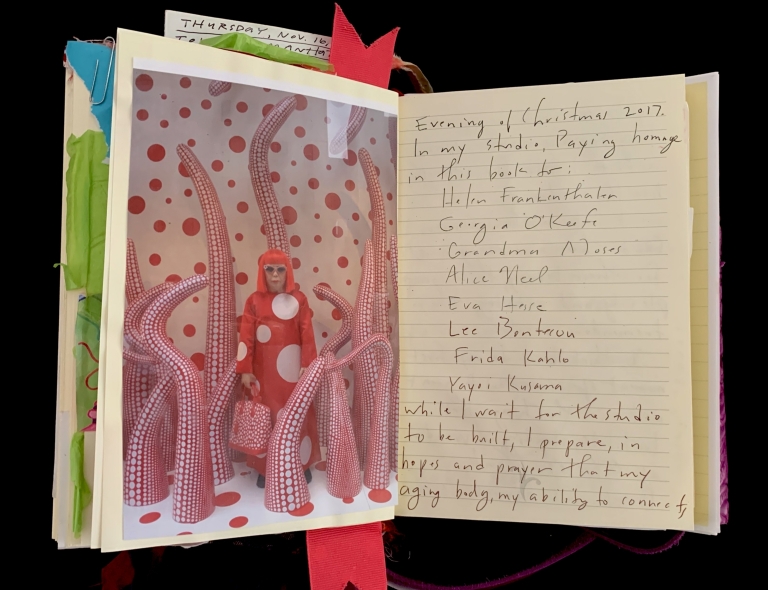 THURSDAY, NOV. 16,
Evening of Christmas 2017.
In my studio, Paying homage
in this book to:
Helen Frankenthaler
Georgia O'Keefe
Grandma Moses
Alice Neel
Eva Hesse
Lee Bontecou
Frida Kahlo
Yayoi Kusama
while I wait for the studio
to be built, I prepare, in
hopes and prayer that my
aging body, my ability to connect,